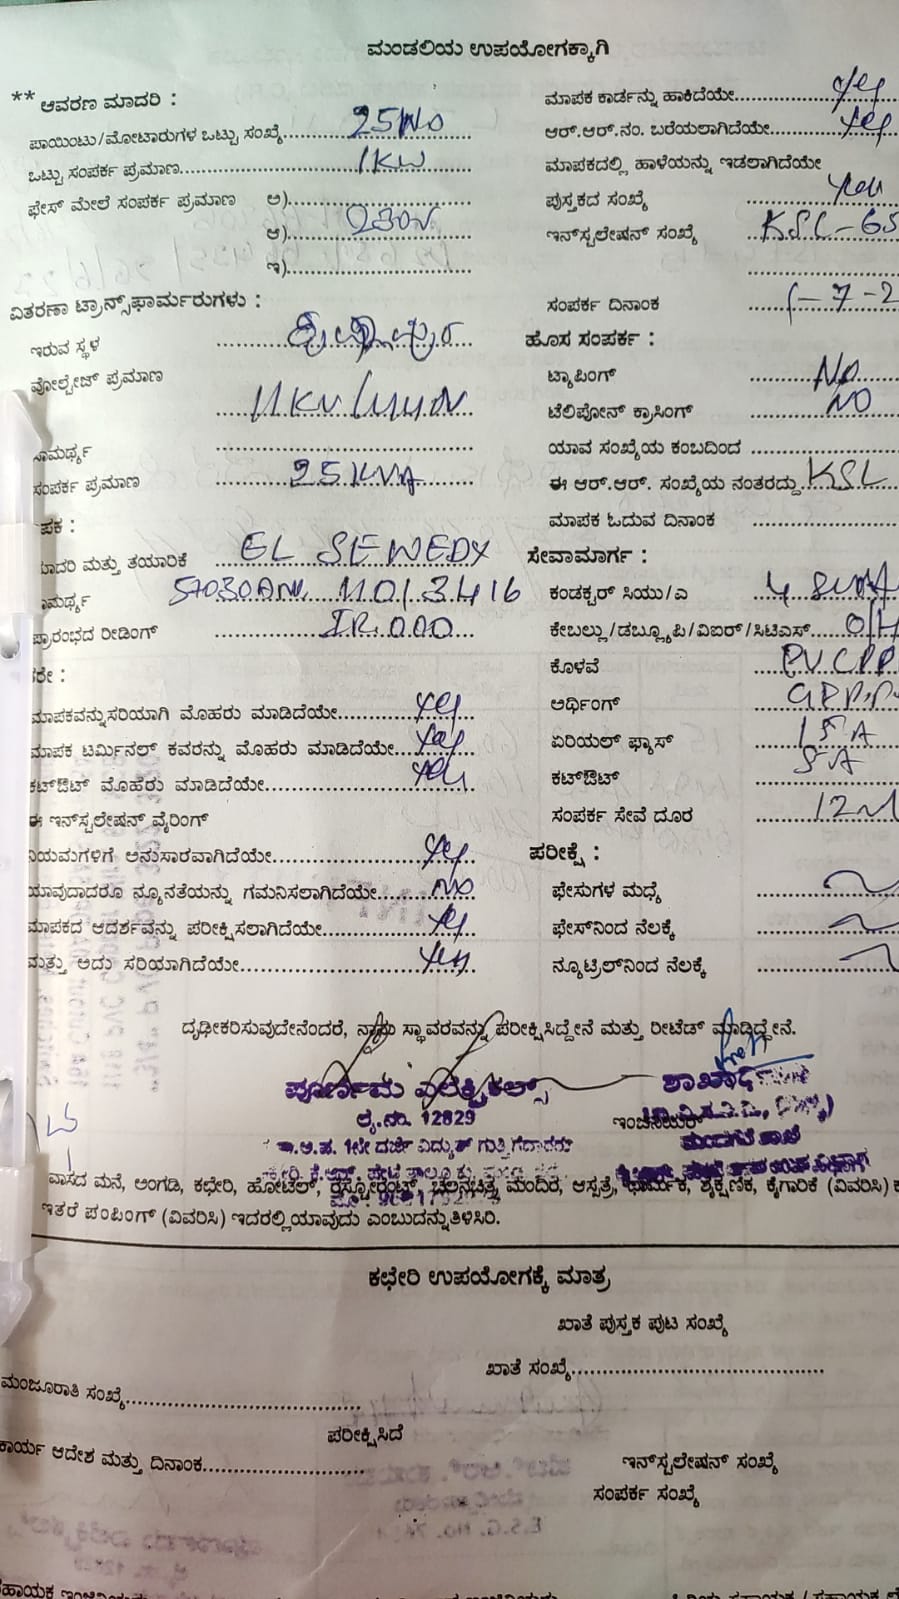 ಮಂಡಲಿಯ ಉಪಯೋಗಕ್ಕಾಗಿ
** ಆವರಣ ಮಾದರಿ :
ಪಾಯಿಂಟು/ಮೋಟಾರುಗಳ ಒಟ್ಟು ಸಂಖ್ಯೆ 25 No
ಒಟ್ಟು ಸಂಪರ್ಕ ಪ್ರಮಾಣ 1KW
ಫೇಸ್ ಮೇಲೆ ಸಂಪರ್ಕ ಪ್ರಮಾಣ ಅ)
ಆ) 230v
ಇ)
ವಿತರಣಾ ಟ್ರಾನ್ಸ್‌ಫಾರ್ಮರುಗಳು :
ಇರುವ ಸ್ಥಳ
ವೋಲ್ಟೇಜ್ ಪ್ರಮಾಣ
11KV/440V
ಸಾಮರ್ಥ್ಯ
ಸಂಪರ್ಕ ಪ್ರಮಾಣ 25 KVA
ಪಕ :
ಮಾದರಿ ಮತ್ತು ತಯಾರಿಕೆ EL SEWEDY
ಸಾಮರ್ಥ್ಯ 11013416
ಪ್ರಾರಂಭದ ರೀಡಿಂಗ್ IR.000
ಕರೇ :
ಮಾಪಕವನ್ನು ಸರಿಯಾಗಿ ಮೊಹರು ಮಾಡಿದೆಯೇ yes
ಮಾಪಕ ಟರ್ಮಿನಲ್ ಕವರನ್ನು ಮೊಹರು ಮಾಡಿದೆಯೇ yes
ಕಟ್‌ಔಟ್ ಮೊಹರು ಮಾಡಿದೆಯೇ yes
ಈ ಇನ್‌ಸ್ಟಲೇಷನ್ ವೈರಿಂಗ್
ನಿಯಮಗಳಿಗೆ ಅನುಸಾರವಾಗಿದೆಯೇ yes
ಯಾವುದಾದರೂ ನ್ಯೂನತೆಯನ್ನು ಗಮನಿಸಲಾಗಿದೆಯೇ No
ಮಾಪಕದ ಆದರ್ಶವನ್ನು ಪರೀಕ್ಷಿಸಲಾಗಿದೆಯೇ yes
ಮತ್ತು ಅದು ಸರಿಯಾಗಿದೆಯೇ yes
ಮಾಪಕ ಕಾರ್ಡನ್ನು ಹಾಕಿದೆಯೇ yes
ಆರ್.ಆರ್.ನಂ. ಬರೆಯಲಾಗಿದೆಯೇ yes
ಮಾಪಕದಲ್ಲಿ ಹಾಳೆಯನ್ನು ಇಡಲಾಗಿದೆಯೇ
ಪುಸ್ತಕದ ಸಂಖ್ಯೆ yes
ಇನ್‌ಸ್ಟಲೇಷನ್ ಸಂಖ್ಯೆ KSL-65
ಸಂಪರ್ಕ ದಿನಾಂಕ
ಹೊಸ ಸಂಪರ್ಕ :
ಟ್ಯಾಪಿಂಗ್ NO
ಟೆಲಿಪೋನ್ ಕ್ರಾಸಿಂಗ್ NO
ಯಾವ ಸಂಖ್ಯೆಯ ಕಂಬದಿಂದ
ಈ ಆರ್.ಆರ್. ಸಂಖ್ಯೆಯ ನಂತರದ್ದು KSL
ಮಾಪಕ ಓದುವ ದಿನಾಂಕ
ಸೇವಾಮಾರ್ಗ :
ಕಂಡಕ್ಟರ್ ಸಿಯು/ಎ
ಕೇಬಲ್ಲು/ಡಬ್ಲ್ಯೂಪಿ/ವಿಐರ್/ಸಿಟಿಎಸ್ O/H
ಕೊಳವೆ PVCPP
ಅರ್ಥಿಂಗ್
ಏರಿಯಲ್ ಫ್ಯೂಸ್ 15A
ಕಟ್‌ಔಟ್ 5A
ಸಂಪರ್ಕ ಸೇವೆ ದೂರ 12M
ಪರೀಕ್ಷೆ :
ಫೇಸುಗಳ ಮಧ್ಯೆ
ಫೇಸ್‌ನಿಂದ ನೆಲಕ್ಕೆ
ನ್ಯೂಟ್ರಿಲ್‌ನಿಂದ ನೆಲಕ್ಕೆ
ದೃಢೀಕರಿಸುವುದೇನೆಂದರೆ, ನಾನು ಸ್ಥಾವರವನ್ನು ಪರೀಕ್ಷಿಸಿದ್ದೇನೆ ಮತ್ತು ರೀಟೆಡ್ ಮಾಡಿದ್ದೇನೆ.
ಪೂರ್ಣಿಮ ಎಲೆಕ್ಟ್ರಿಕಲ್ಸ್
ಲೈ.ನಂ. 12829
ಇಂಜಿನಿಯರ್
ವಾಸದ ಮನೆ, ಅಂಗಡಿ, ಕಛೇರಿ, ಹೋಟೆಲ್, ರೆಸ್ಟೋರೆಂಟ್, ಚಲನಚಿತ್ರ ಮಂದಿರ, ಆಸ್ಪತ್ರೆ, ಧಾರ್ಮಿಕ, ಶೈಕ್ಷಣಿಕ, ಕೈಗಾರಿಕೆ (ವಿವರಿಸಿ)
ಇತರೆ ಪಂಪಿಂಗ್ (ವಿವರಿಸಿ) ಇದರಲ್ಲಿಯಾವುದು ಎಂಬುದನ್ನು ತಿಳಿಸಿರಿ.
ಕಛೇರಿ ಉಪಯೋಗಕ್ಕೆ ಮಾತ್ರ
ಖಾತೆ ಪುಸ್ತಕ ಪುಟ ಸಂಖ್ಯೆ
ಖಾತೆ ಸಂಖ್ಯೆ
ಮಂಜೂರಾತಿ ಸಂಖ್ಯೆ
ಪರೀಕ್ಷಿಸಿದೆ
ಕಾರ್ಯ ಆದೇಶ ಮತ್ತು ದಿನಾಂಕ
ಇನ್‌ಸ್ಟಲೇಷನ್ ಸಂಖ್ಯೆ
ಸಂಪರ್ಕ ಸಂಖ್ಯೆ